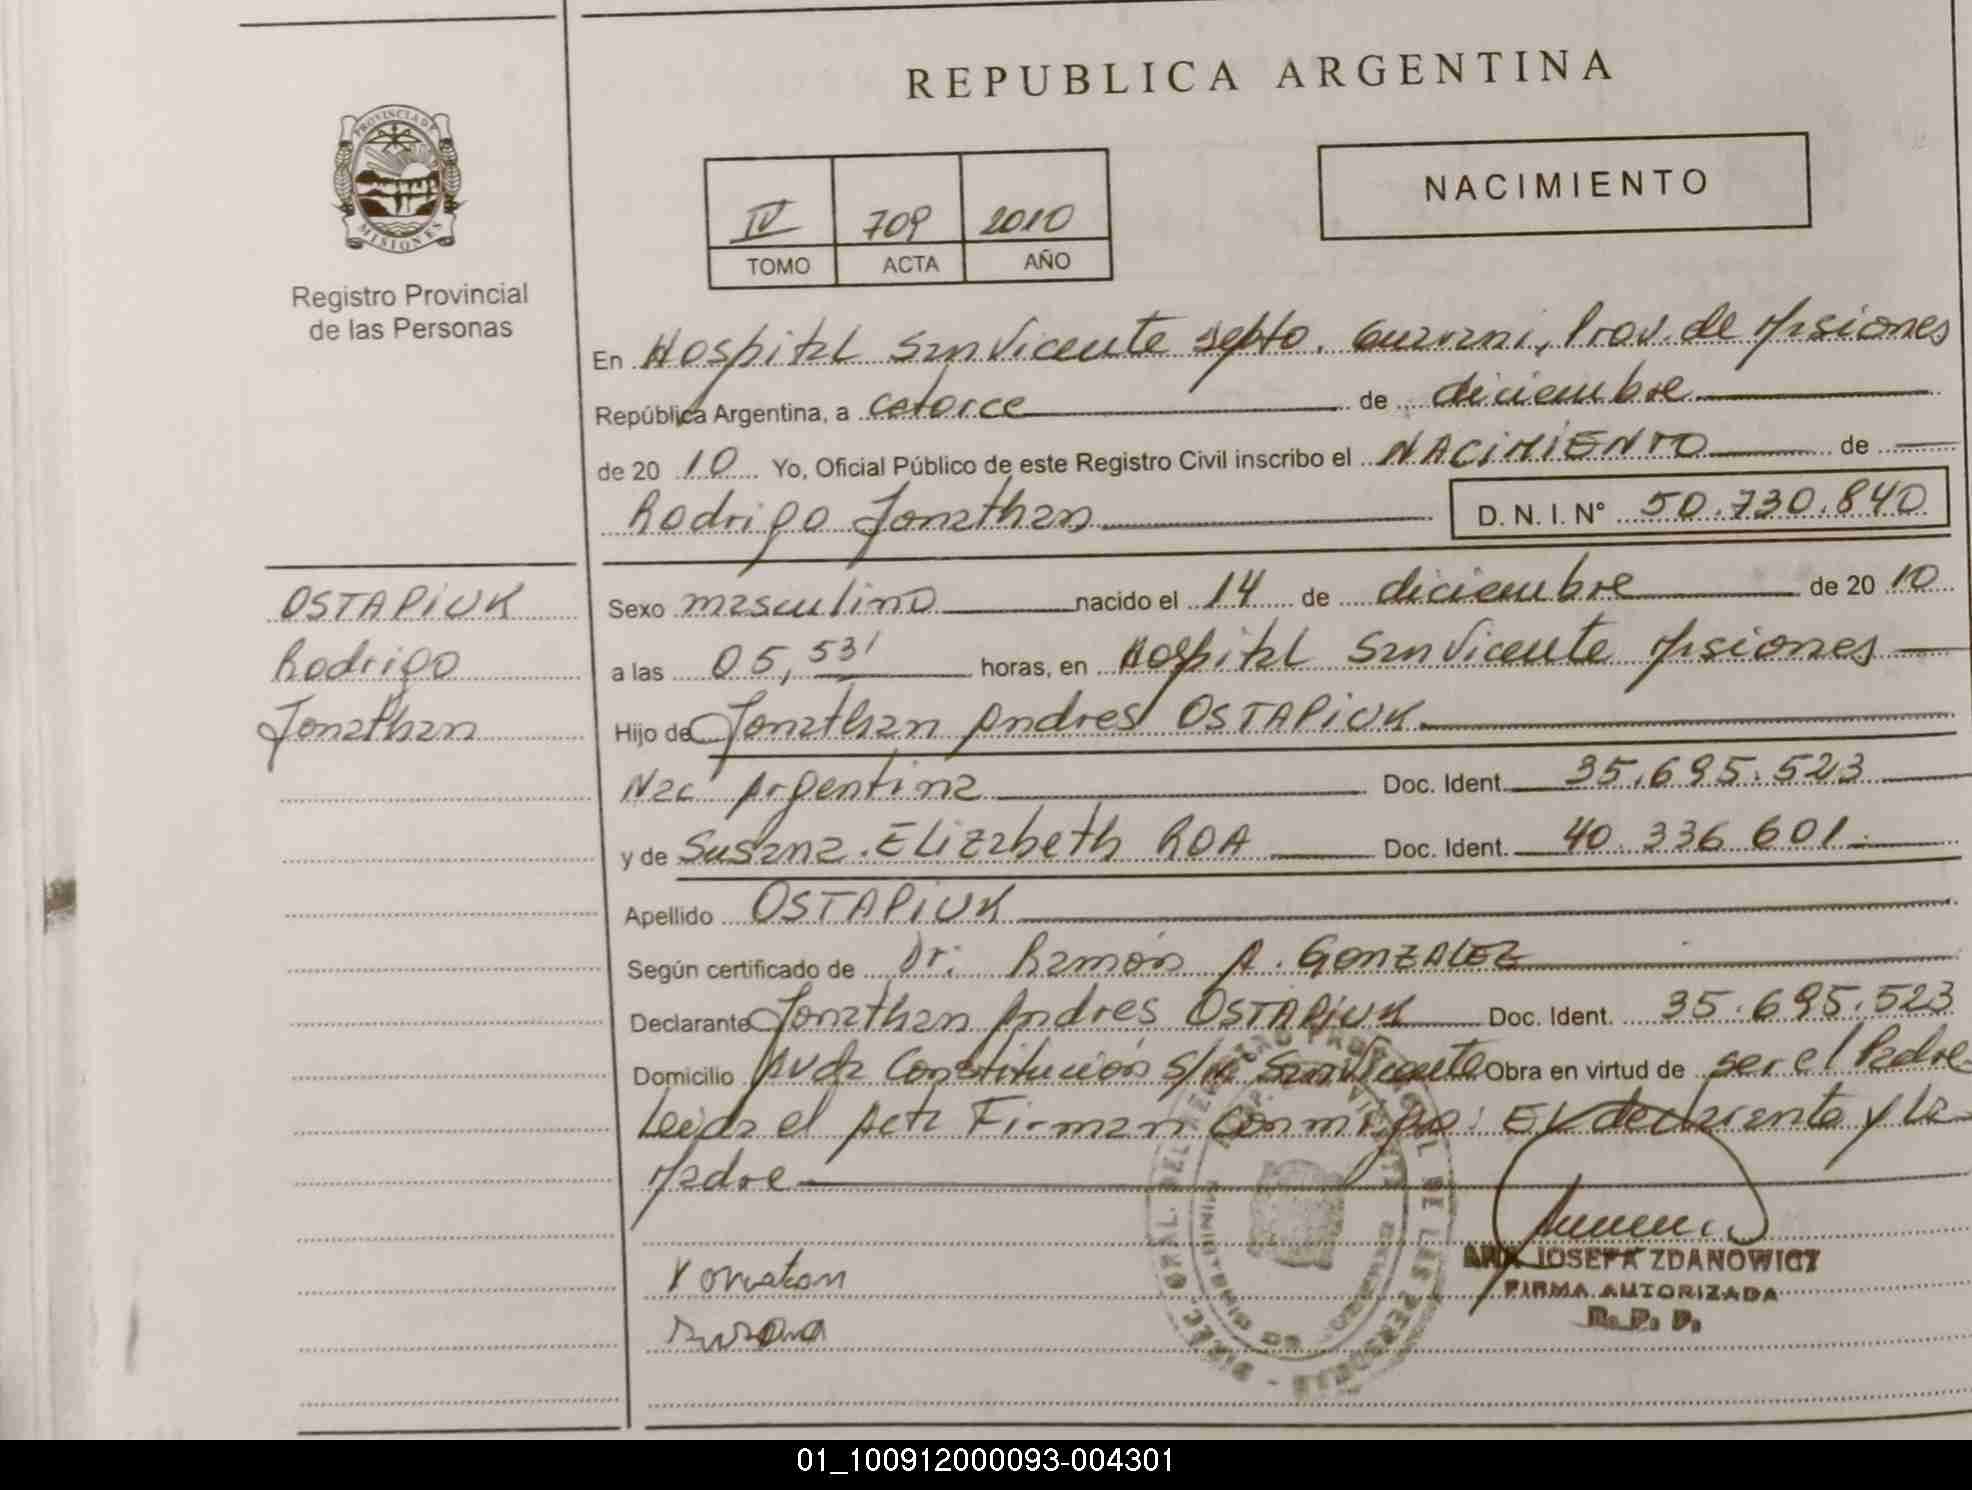 REPUBLICA ARGENTINA
PROVINCIA DE
MISIONES
Registro Provincial
de las Personas
NACIMIENTO
IV 709 2010
TOMO ACTA AÑO
En Hospital San Vicente depto. Guarani, Prov. de Misiones
República Argentina, a catorce de diciembre
de 20 10 Yo, Oficial Público de este Registro Civil inscribo el NACIMIENTO de
Rodrigo Jonathan D. N. I. N° 50.730.840
OSTAPIUK
Rodrigo
Jonathan
Sexo masculino nacido el 14 de diciembre de 20 10
a las 05,53' horas, en Hospital San Vicente Misiones
Hijo de Jonathan Andres OSTAPIUK
Nac Argentina Doc. Ident. 35.695.523
y de Susana Elizabeth ROA Doc. Ident. 40.336.601
Apellido OSTAPIUK
Según certificado de Dr. Ramón A. GONZALEZ
Declarante Jonathan Andres OSTAPIUK Doc. Ident. 35.695.523
Domicilio Avda Constitución S/N San Vicente Obra en virtud de ser el Padre
Leida el Acta Firman Conmigo: El declarante y la
Madre
Yonatan
Susana
ANA JOSEFA ZDANOWICZ
FIRMA AUTORIZADA
R. P. P.
01_100912000093-004301